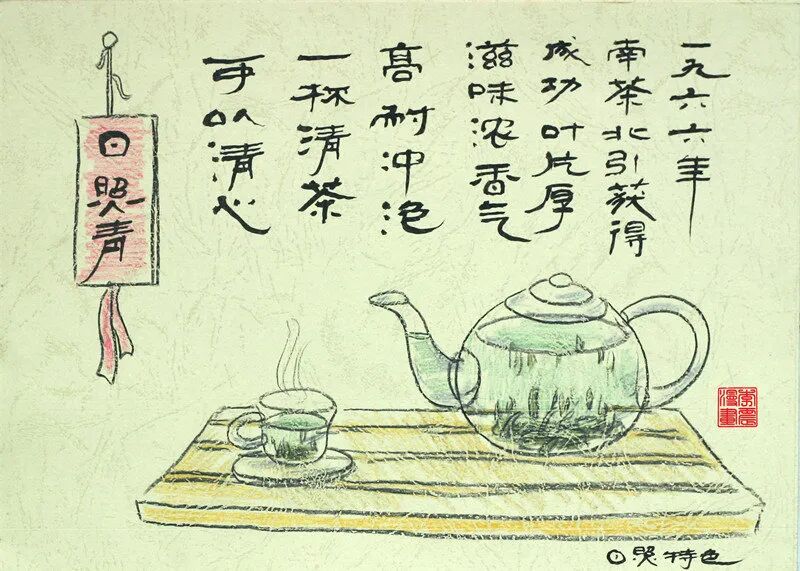 一九六六年
南茶北引获得
成功叶片厚
滋味浓香气
高耐冲泡
一杯清茶
可以清心
日照青
漫畫
日照特色